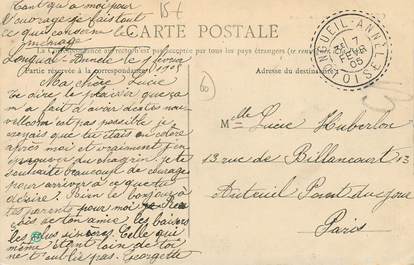 tant qu'à moi pour
l'ouvrage je fais tout
ce qui concerne le
ménage
CARTE POSTALE
La Correspondance au recto n'est pas acceptée par tous les pays étrangers
Partie réservée à la correspondance
Adresse du destinataire
LONGUEIL-ANNEL
7
FEVR
05
OISE
Longueil-Annel le 7 février
1905
Ma chère Lucie
tu dire le plaisir que sa
m'a fait d'avoir de tes nou-
velles n'est pas possible je
croyais que tu étais en colère
après moi et vraiment j'en
du chagrin je te
souhaite beaucoup de courage
pour arriver à ce que tu
désire! Bien le bonjour à
tes parents pour moi
de ton amie les baisers
les plus sincères Celle qui
même étant loin de toi
ne t'oublie pas Georgette
Melle Lucie Huberlon
13 rue de Billancourt 13
Auteuil Point du Jour
Paris